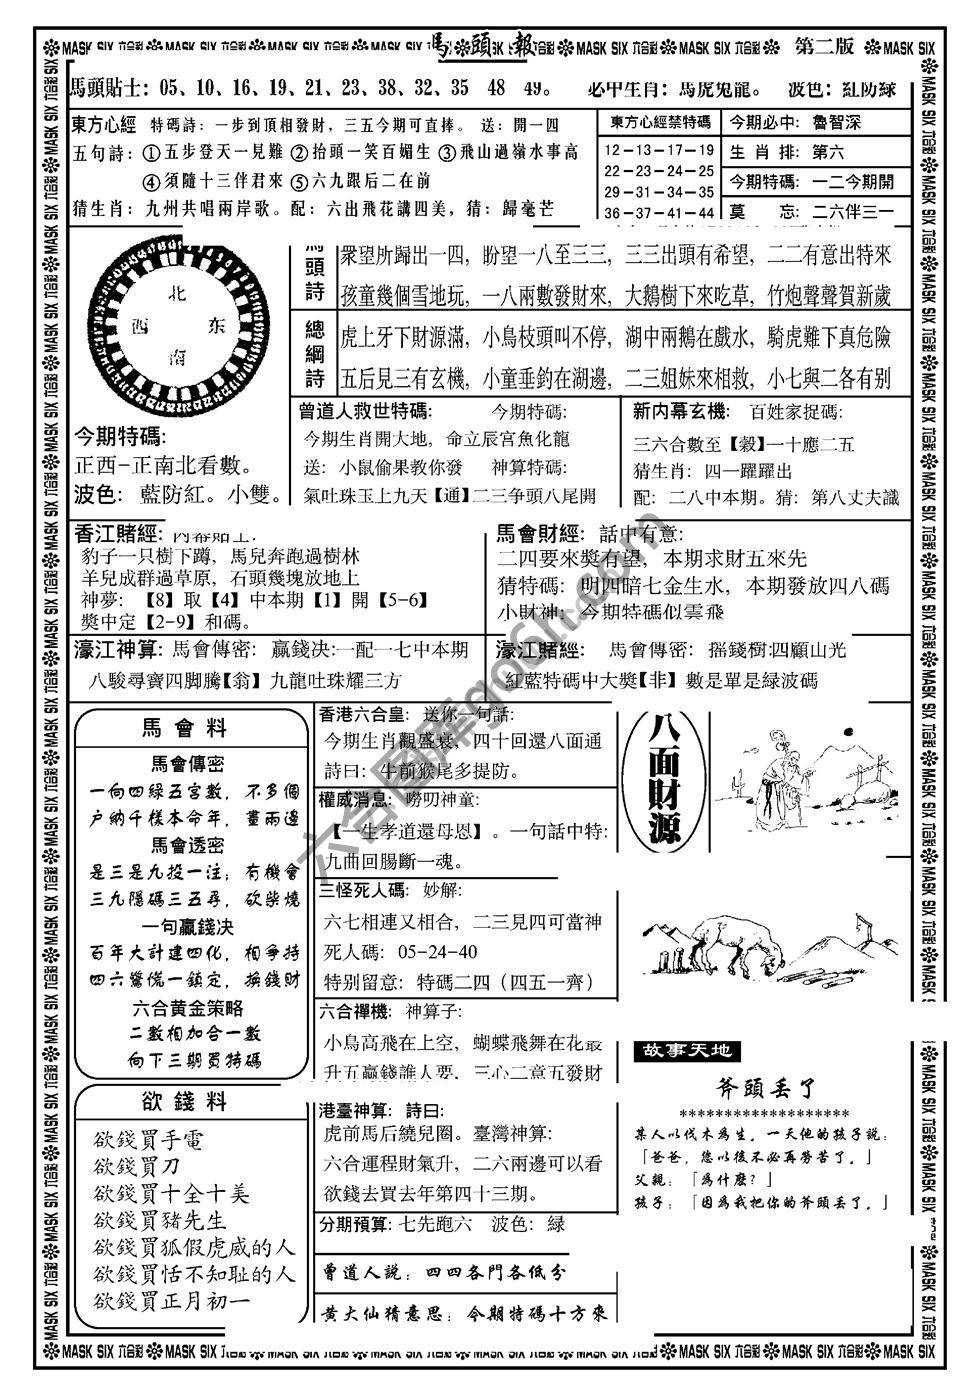 馬頭報
第二版
MASK SIX 六合彩
馬頭貼士：05、10、16、19、21、23、38、32、35 48 49。 必中生肖：馬虎兔龍。 波色：紅防綠
東方心經 特碼詩：一步到頂相發財，三五今期可直捧。 送：開一四
五句詩：①五步登天一見難 ②抬頭一笑百媚生 ③飛山過嶺水事高
④須隨十三伴君來 ⑤六九跟后二在前
猜生肖：九州共唱兩岸歌。配：六出飛花講四美，猜：歸毫芒
東方心經禁特碼
12-13-17-19
22-23-24-25
29-31-34-35
36-37-41-44
今期必中：魯智深
生肖排：第六
今期特碼：一二今期開
莫 忘：二六伴三一
北
西 东
南
今期特碼：
正西-正南北看數。
波色：藍防紅。小雙。
馬頭詩
衆望所歸出一四，盼望一八至三三，三三出頭有希望，二二有意出特來
孩童幾個雪地玩，一八兩數發財來，大鵝樹下來吃草，竹炮聲聲賀新歲
總綱詩
虎上牙下財源滿，小鳥枝頭叫不停，湖中兩鵝在戲水，騎虎難下真危險
五后見三有玄機，小童垂釣在湖邊，二三姐妹來相救，小七與二各有别
曾道人救世特碼： 今期特碼：
今期生肖開大地，命立辰宫魚化龍
送：小鼠偷果教你發 神算特碼：
氣吐珠玉上九天【通】二三争頭八尾開
新内幕玄機：百姓家捉碼：
三六合數至【穀】一十應二五
猜生肖：四一躍躍出
配：二八中本期。猜：第八丈夫識
香江賭經：内幕貼士：
豹子一只樹下蹲，馬兒奔跑過樹林
羊兒成群過草原，石頭幾塊放地上
神夢：【8】取【4】中本期【1】開【5-6】
獎中定【2-9】和碼。
馬會財經：話中有意：
二四要來獎有望，本期求財五來先
猜特碼：明四暗七金生水，本期發放四八碼
小財神：今期特碼似雲飛
濠江神算：馬會傳密：贏錢决：一配一七中本期
八駿尋寶四脚騰【翁】九龍吐珠耀三方
濠江賭經： 馬會傳密：摇錢樹：四顧山光
紅藍特碼中大奬【非】數是單是緑波碼
馬會料
馬會傳密
一向四緑五宫數，不多個
户納千樣本命年，畫兩邊
馬會透密
是三是九投一注；有機會
三九隱碼三五尋，砍柴燒
一句贏錢决
百年大計建四化，相争持
四六驚慌一鎮定，换錢財
六合黄金策略
二數相加合一數
向下三期買特碼
欲錢料
欲錢買手電
欲錢買刀
欲錢買十全十美
欲錢買豬先生
欲錢買狐假虎威的人
欲錢買恬不知耻的人
欲錢買正月初一
香港六合皇：送你一句話：
今期生肖觀盛衰，四十回還八面通
詩曰：牛前猴尾多提防。
權威消息：嘮叨神童：
【一生孝道還母恩】。一句話中特：
九曲回腸斷一魂。
三怪死人碼：妙解：
六七相連又相合，二三見四可當神
死人碼：05-24-40
特别留意：特碼二四（四五一齊）
六合禪機：神算子：
小鳥高飛在上空，蝴蝶飛舞在花叢
升五贏錢誰人要，三心二意五發財
港臺神算：詩曰：
虎前馬后繞兒圈。臺灣神算：
六合運程財氣升，二六兩邊可以看
欲錢去買去年第四十三期。
分期預算：七先跑六 波色：緑
曾道人説：四四各門各低分
黄大仙猜意思：今期特碼十方來
八面財源
故事天地
斧頭丢了
*******************
某人以伐木為生，一天他的孩子説：
「爸爸，您以後不必再勞苦了。」
父親：「為什麽？」
孩子：「因為我把你的斧頭丢了。」
六合图库go6h.com